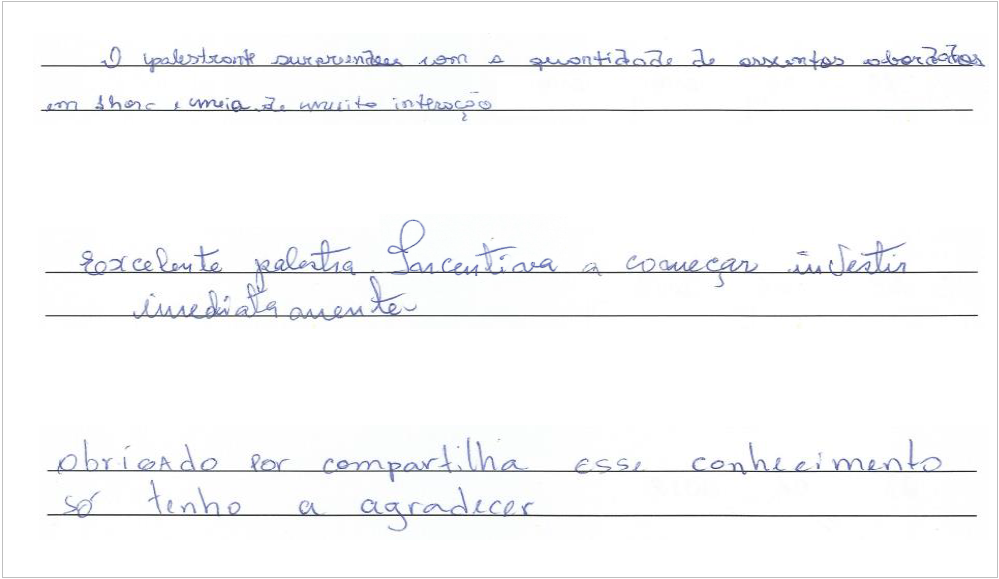 O palestrante surpreendeu com a quantidade de assuntos abordados
em 1 hora e meia de muito interação
Excelente palestra. Incentiva a começar investir
imediatamente
obrigado por compartilha esse conhecimento
só tenho a agradecer